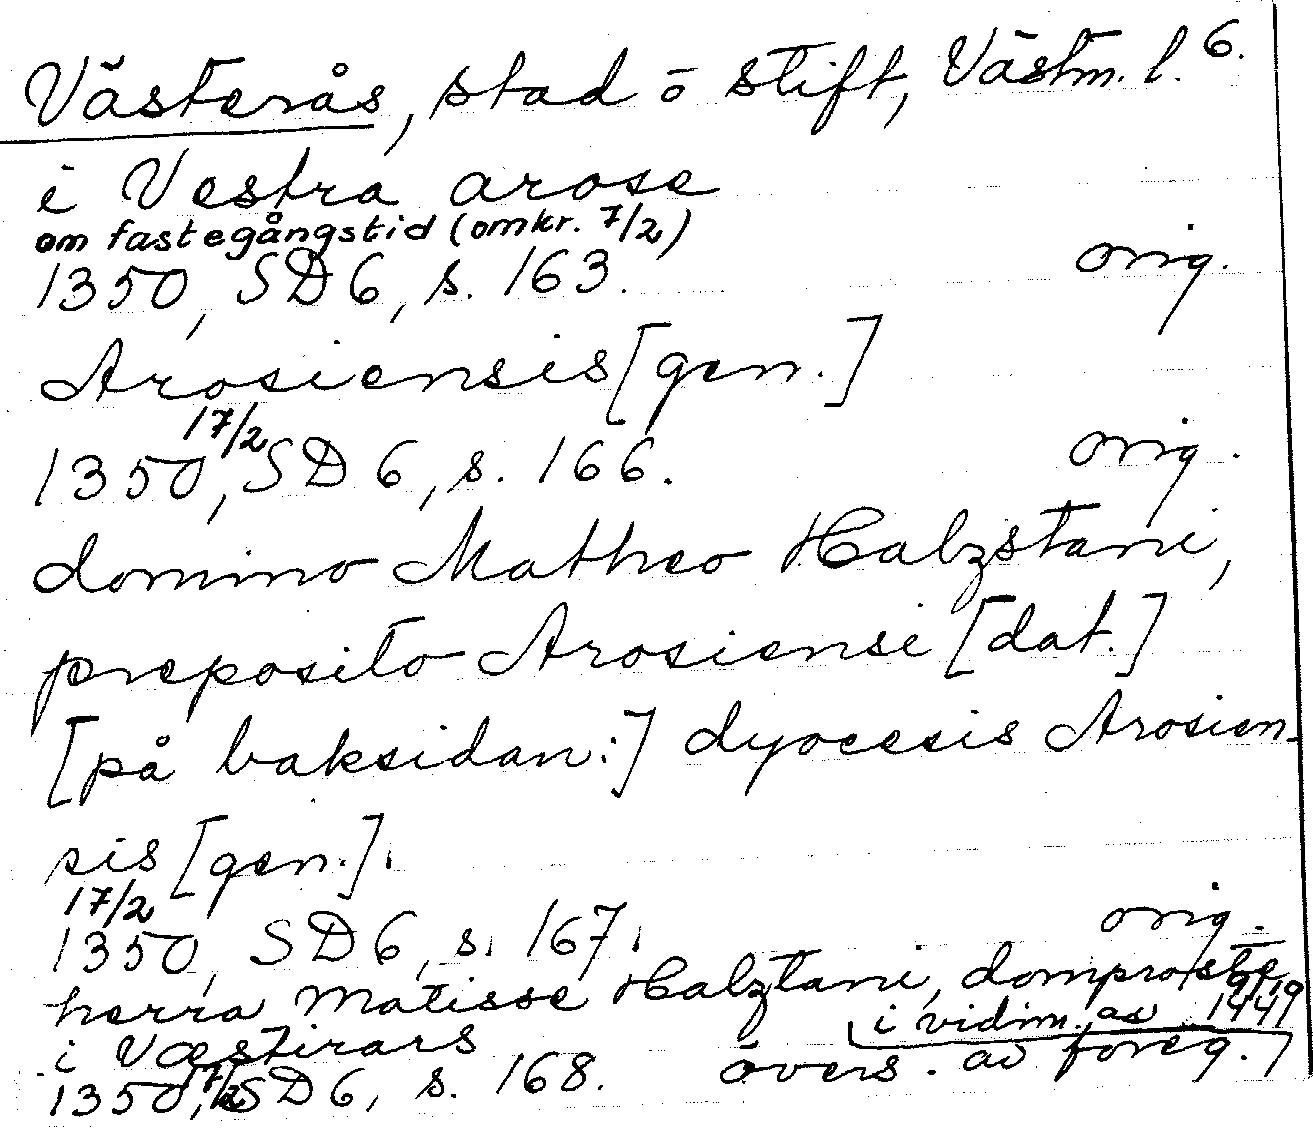 Västerås, stad o stift, Västm. l. 6.
i Vestra arose
om fastegångstid (omkr. 7/2)
1350, SD 6, s. 163. orig.
Arosiensis [gen.]
17/2
1350, SD 6, s. 166. orig.
domino Matheo Halzstani,
preposito Arosiensi [dat.]
[på baksidan:] dyocesis Arosien-
sis [gen.].
17/2
1350, SD 6, s. 167. orig.
herra Matisse Halztani, domproste
i Væstirars i vidim. av 1449
17/2
1350, SD 6, s. 168. övers. av föreg.